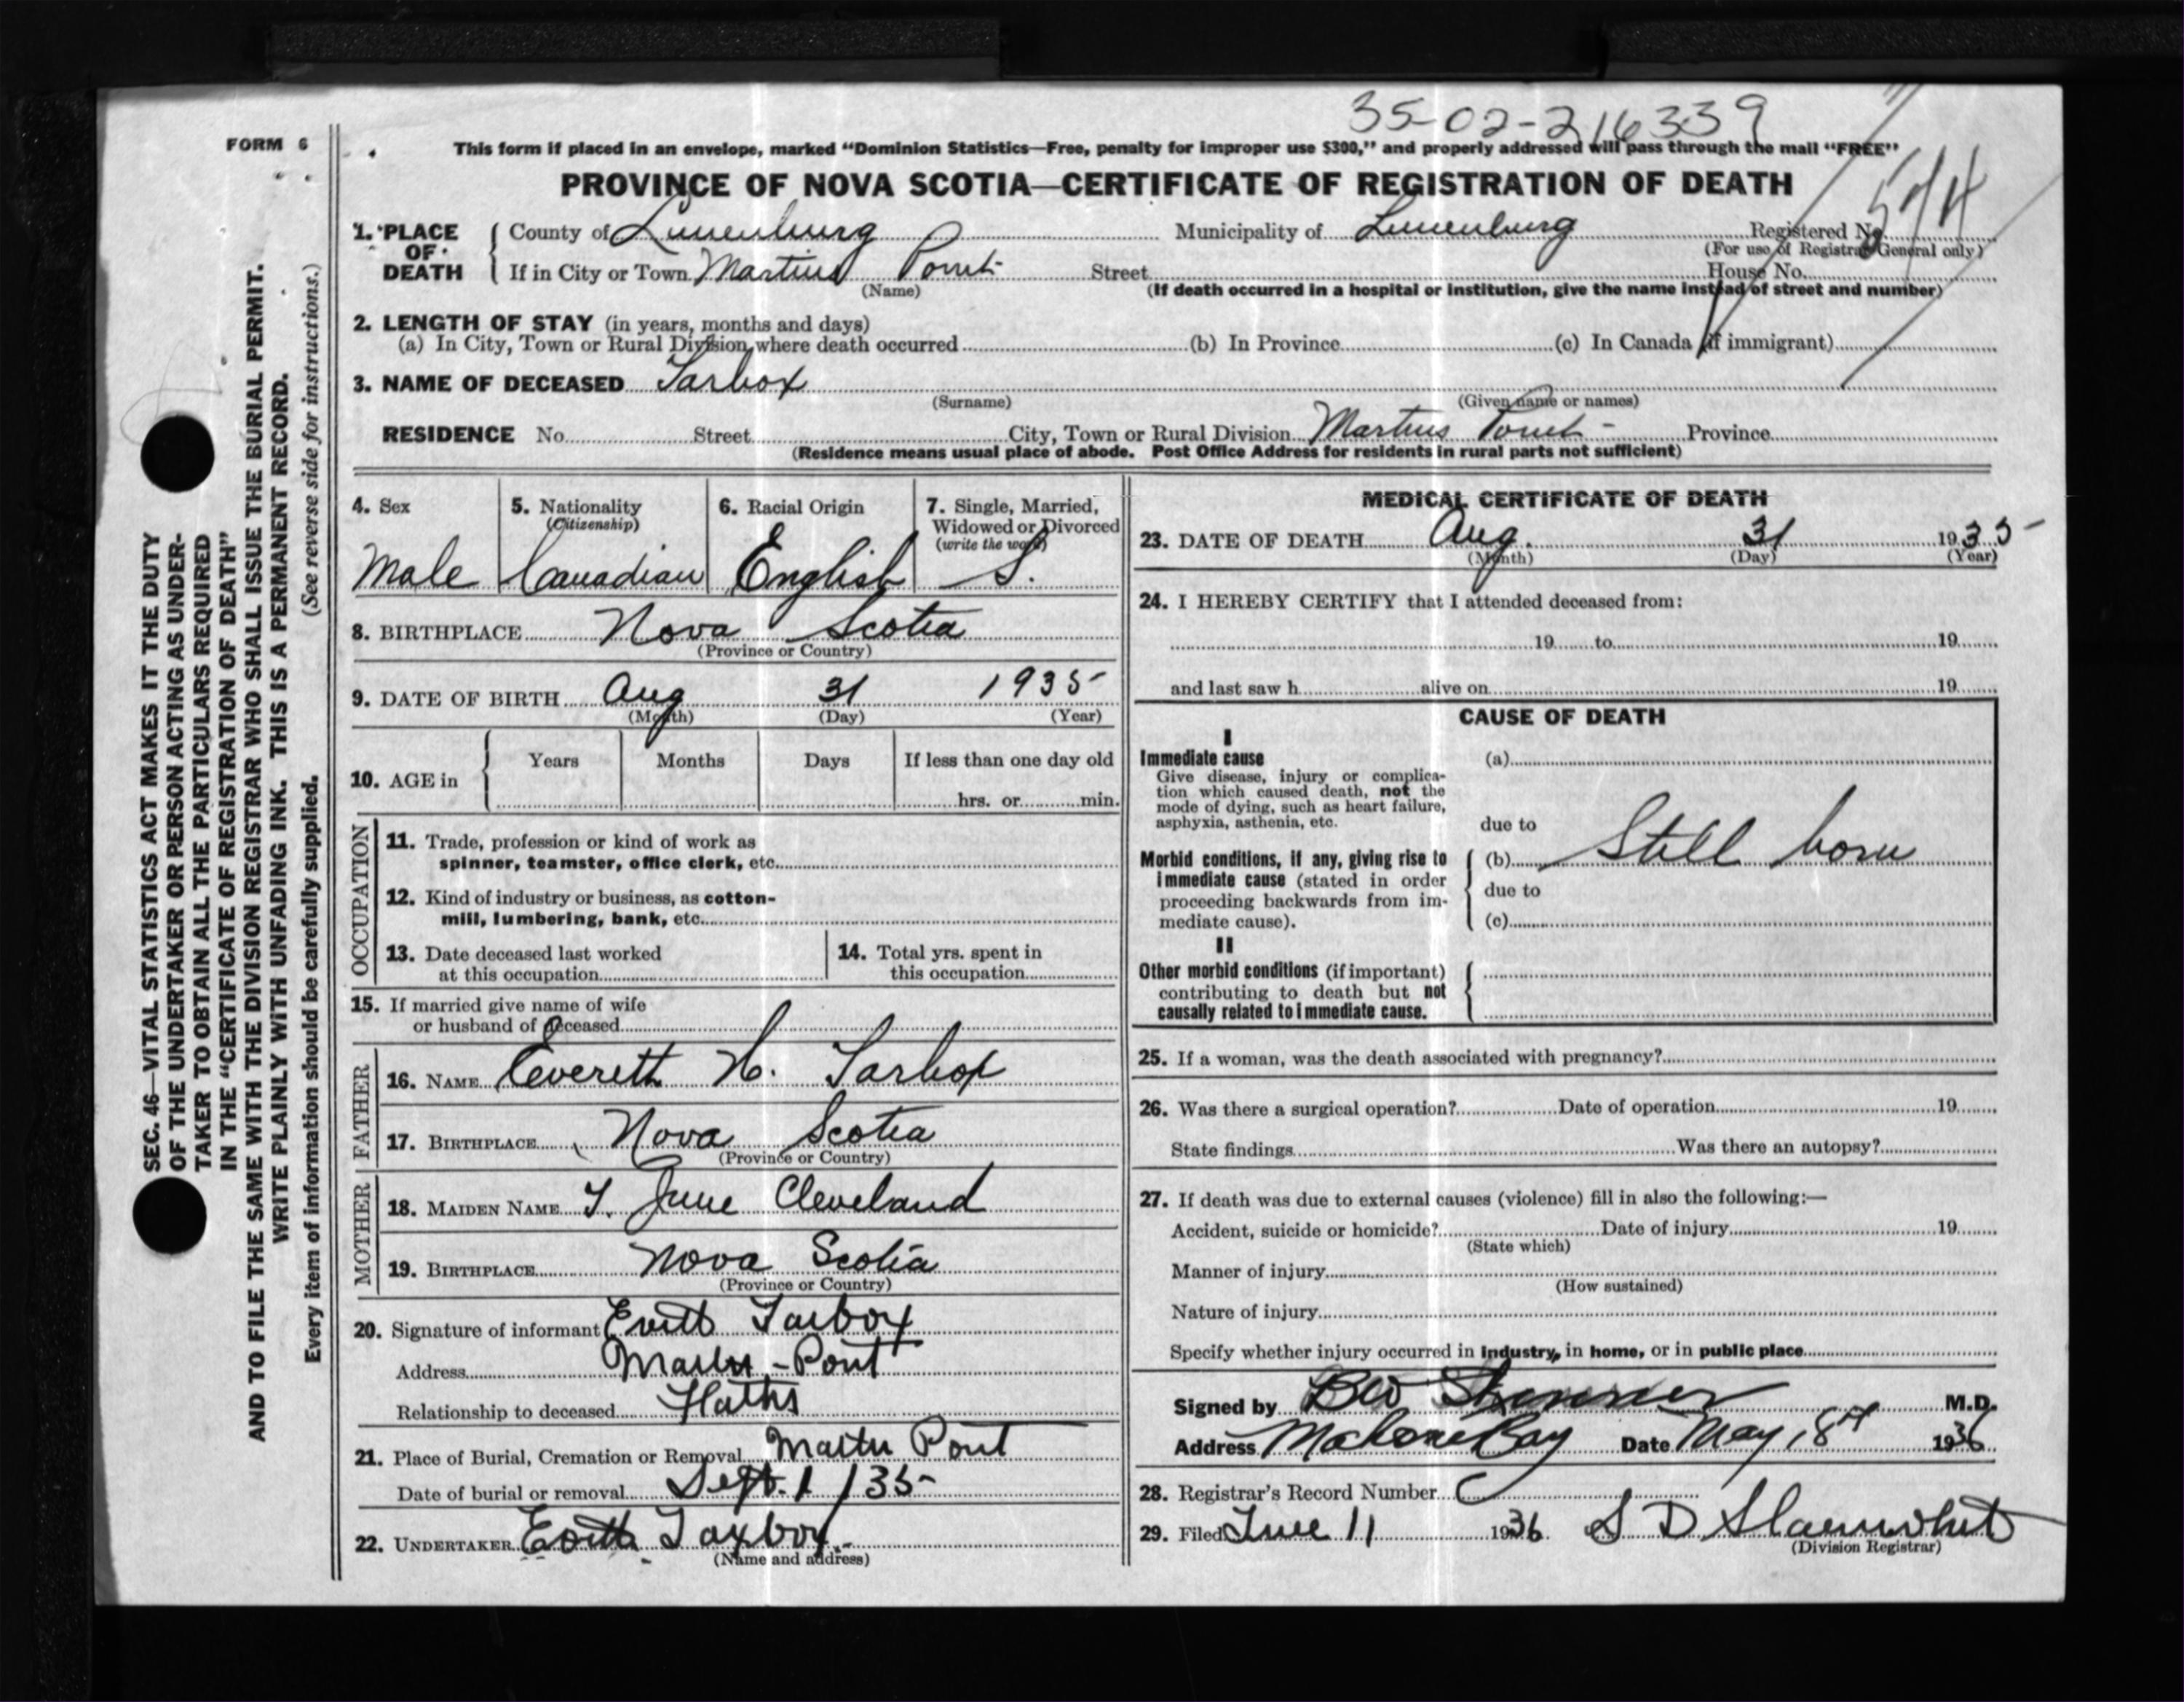 35-02-216339
FORM 6
This form if placed in an envelope, marked “Dominion Statistics—Free, penalty for improper use $300,” and properly addressed will pass through the mail “FREE”
PROVINCE OF NOVA SCOTIA—CERTIFICATE OF REGISTRATION OF DEATH
1. PLACE OF DEATH
County of Lunenburg Municipality of Lunenburg Registered No.
(For use of Registrar General only)
If in City or Town Martins Point Street House No.
(Name) (If death occurred in a hospital or institution, give the name instead of street and number)
2. LENGTH OF STAY (in years, months and days)
(a) In City, Town or Rural Division where death occurred (b) In Province (c) In Canada (if immigrant)
3. NAME OF DECEASED Tarbox
(Surname) (Given name or names)
RESIDENCE No. Street City, Town or Rural Division Martins Point - Province
(Residence means usual place of abode. Post Office Address for residents in rural parts not sufficient)
SEC. 46—VITAL STATISTICS ACT MAKES IT THE DUTY
OF THE UNDERTAKER OR PERSON ACTING AS UNDER-
TAKER TO OBTAIN ALL THE PARTICULARS REQUIRED
IN THE “CERTIFICATE OF REGISTRATION OF DEATH”
AND TO FILE THE SAME WITH THE DIVISION REGISTRAR WHO SHALL ISSUE THE BURIAL PERMIT.
WRITE PLAINLY WITH UNFADING INK. THIS IS A PERMANENT RECORD.
Every item of information should be carefully supplied. (See reverse side for instructions.)
4. Sex
Male
5. Nationality
(Citizenship)
Canadian
6. Racial Origin
English
7. Single, Married,
Widowed or Divorced
(write the word)
S.
8. BIRTHPLACE Nova Scotia
(Province or Country)
9. DATE OF BIRTH Aug 31 1935
(Month) (Day) (Year)
10. AGE in
Years Months Days If less than one day old
hrs. or min.
OCCUPATION
11. Trade, profession or kind of work as
spinner, teamster, office clerk, etc.
12. Kind of industry or business, as cotton-
mill, lumbering, bank, etc.
13. Date deceased last worked
at this occupation
14. Total yrs. spent in
this occupation
15. If married give name of wife
or husband of deceased
FATHER
16. NAME Everett H. Tarbox
17. BIRTHPLACE Nova Scotia
(Province or Country)
MOTHER
18. MAIDEN NAME T. June Cleveland
19. BIRTHPLACE Nova Scotia
(Province or Country)
20. Signature of informant Tarbox
Address
Relationship to deceased
21. Place of Burial, Cremation or Removal
Date of burial or removal Sept. 1/35
22. UNDERTAKER
(Name and address)
MEDICAL CERTIFICATE OF DEATH
23. DATE OF DEATH Aug. 31 1935
(Month) (Day) (Year)
24. I HEREBY CERTIFY that I attended deceased from:
19 to 19
and last saw h alive on 19
CAUSE OF DEATH
I
Immediate cause (a)
Give disease, injury or complica-
tion which caused death, not the
mode of dying, such as heart failure,
asphyxia, asthenia, etc.
due to
Morbid conditions, if any, giving rise to
immediate cause (stated in order
proceeding backwards from im-
mediate cause).
(b) Still born
due to
(c)
II
Other morbid conditions (if important)
contributing to death but not
causally related to immediate cause.
25. If a woman, was the death associated with pregnancy?
26. Was there a surgical operation? Date of operation 19
State findings Was there an autopsy?
27. If death was due to external causes (violence) fill in also the following:—
Accident, suicide or homicide? Date of injury 19
(State which)
Manner of injury
(How sustained)
Nature of injury
Specify whether injury occurred in industry, in home, or in public place
Signed by M.D.
Address Mahone Bay Date May, 8th 1936
28. Registrar's Record Number
29. Filed June 11 1936 S D Slaunwhite
(Division Registrar)